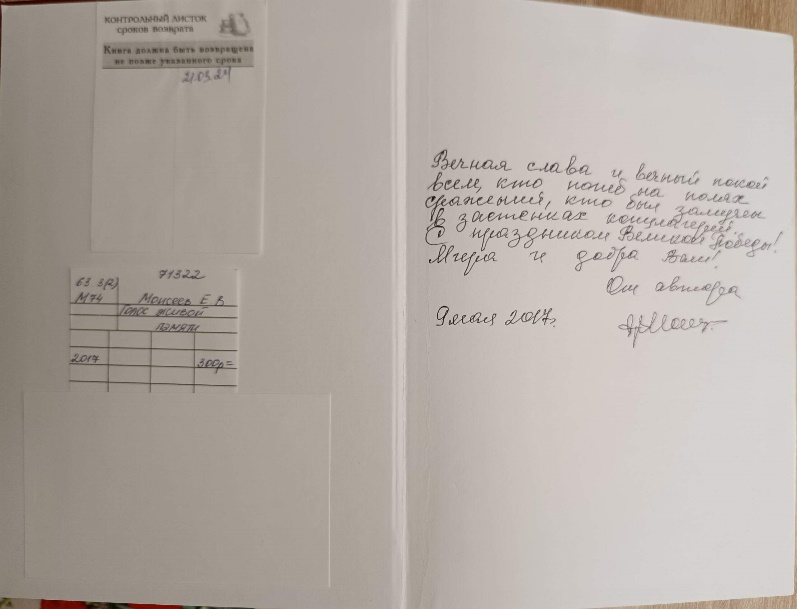 КОНТРОЛЬНЫЙ ЛИСТОК
сроков возврата
Книга должна быть возвращена
не позже указанного срока
21.03.24
71322
63.3(2)
М74 Моисеев Е В
Голос живой
памяти
2017 300р=
Вечная слава и вечный покой
всем, кто погиб на полях
сражений, кто был замучен
в застенках концлагерей.
С праздником Великой Победы!
Мира и добра Вам!
От автора
9 мая 2017г.